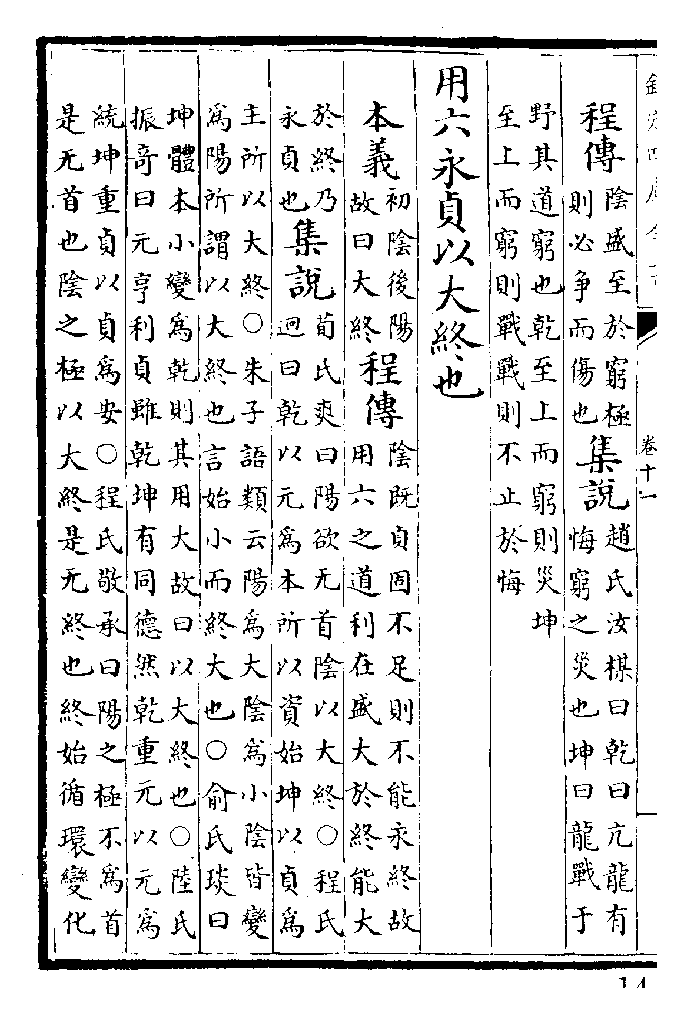 欽定四庫全書
卷十一
程傳
陰盛至於窮極
則必争而傷也
集說
趙氏汝楳曰乾曰亢龍有
悔窮之災也坤曰龍戰于
野其道窮也乾至上而窮則災坤
至上而窮則戰戰則不止於悔
用六永貞以大終也
本義
初陰後陽
故曰大終
程傳
陰既貞固不足則不能永終故
用六之道利在盛大於終能大
於終乃
永貞也
集說
荀氏爽曰陽欲无首陰以大終○程氏
迥曰乾以元爲本所以資始坤以貞爲
主所以大終○朱子語類云陽爲大陰爲小陰皆變
爲陽所謂以大終也言始小而終大也○俞氏琰曰
坤體本小變爲乾則其用大故曰以大終也○陸氏
振奇曰元亨利貞雖乾坤有同德然乾重元以元爲
統坤重貞以貞爲安○程氏敬承曰陽之極不爲首
是无首也陰之極以大終是无終也終始循環變化
14